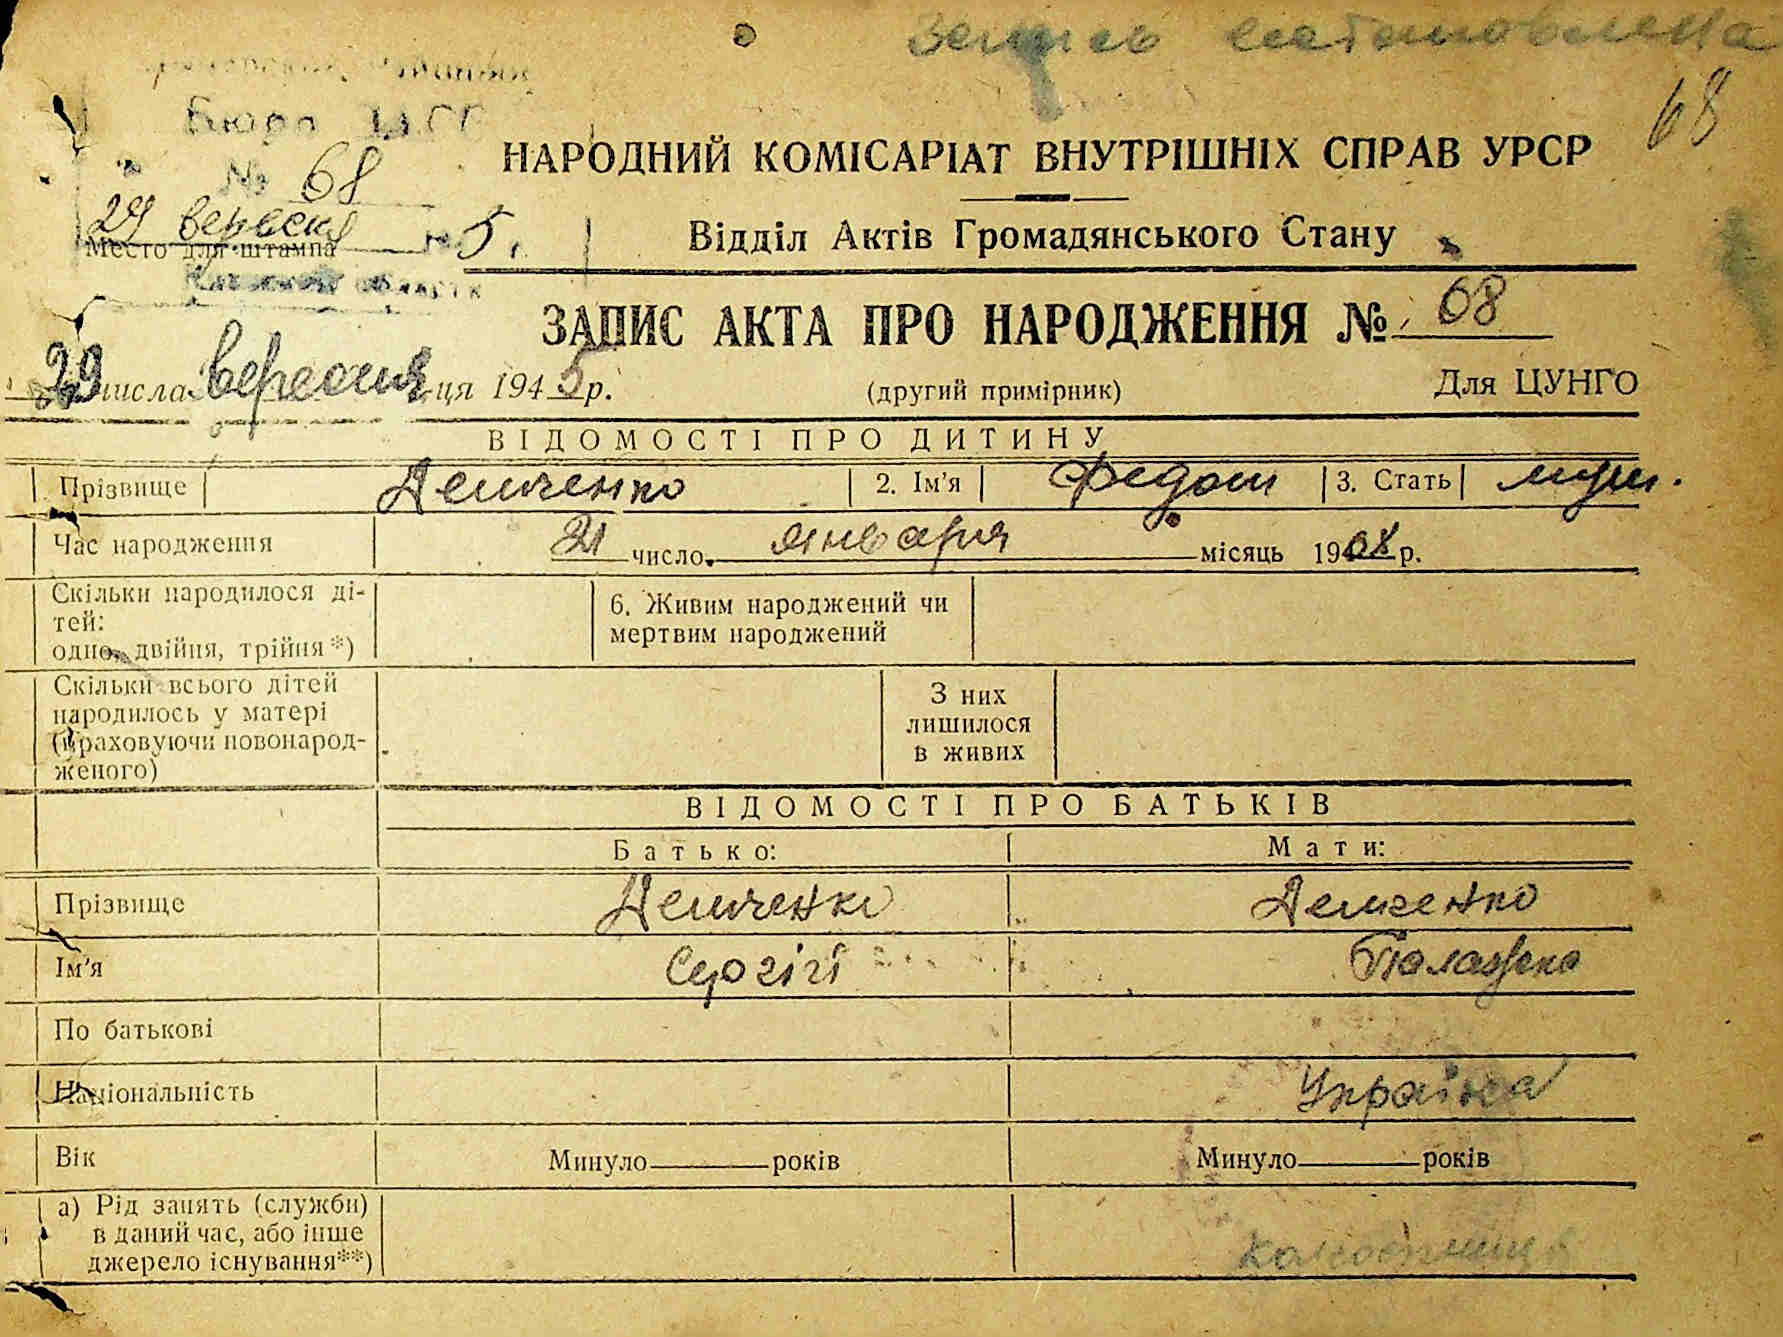 68
Бюро ЗАГС
НАРОДНИЙ КОМІСАРІАТ ВНУТРІШНІХ СПРАВ УРСР
№ 68
29 вересня 5 г.
Место для штампа
Відділ Актів Громадянського Стану
ЗАПИС АКТА ПРО НАРОДЖЕННЯ № 68
29 числа вересня ця 1945 р. (другий примірник) Для ЦУНГО
ВІДОМОСТІ ПРО ДИТИНУ
Прізвище Демченко 2. Ім'я Федот 3. Стать муж.
Час народження 21 число января місяць 1908 р.
Скільки народилося ді-
тей:
одно, двійня, трійня*)
6. Живим народжений чи
мертвим народжений
Скільки всього дітей
народилось у матері
(враховуючи новонарод-
женого)
З них
лишилося
в живих
ВІДОМОСТІ ПРО БАТЬКІВ
Батько: Мати:
Прізвище Демченко Демченко
Ім'я Сергій Палажка
По батькові
Національність Українка
Вік Минуло років Минуло років
а) Рід занять (служби)
в даний час, або інше
джерело існування**)
колгоспниця